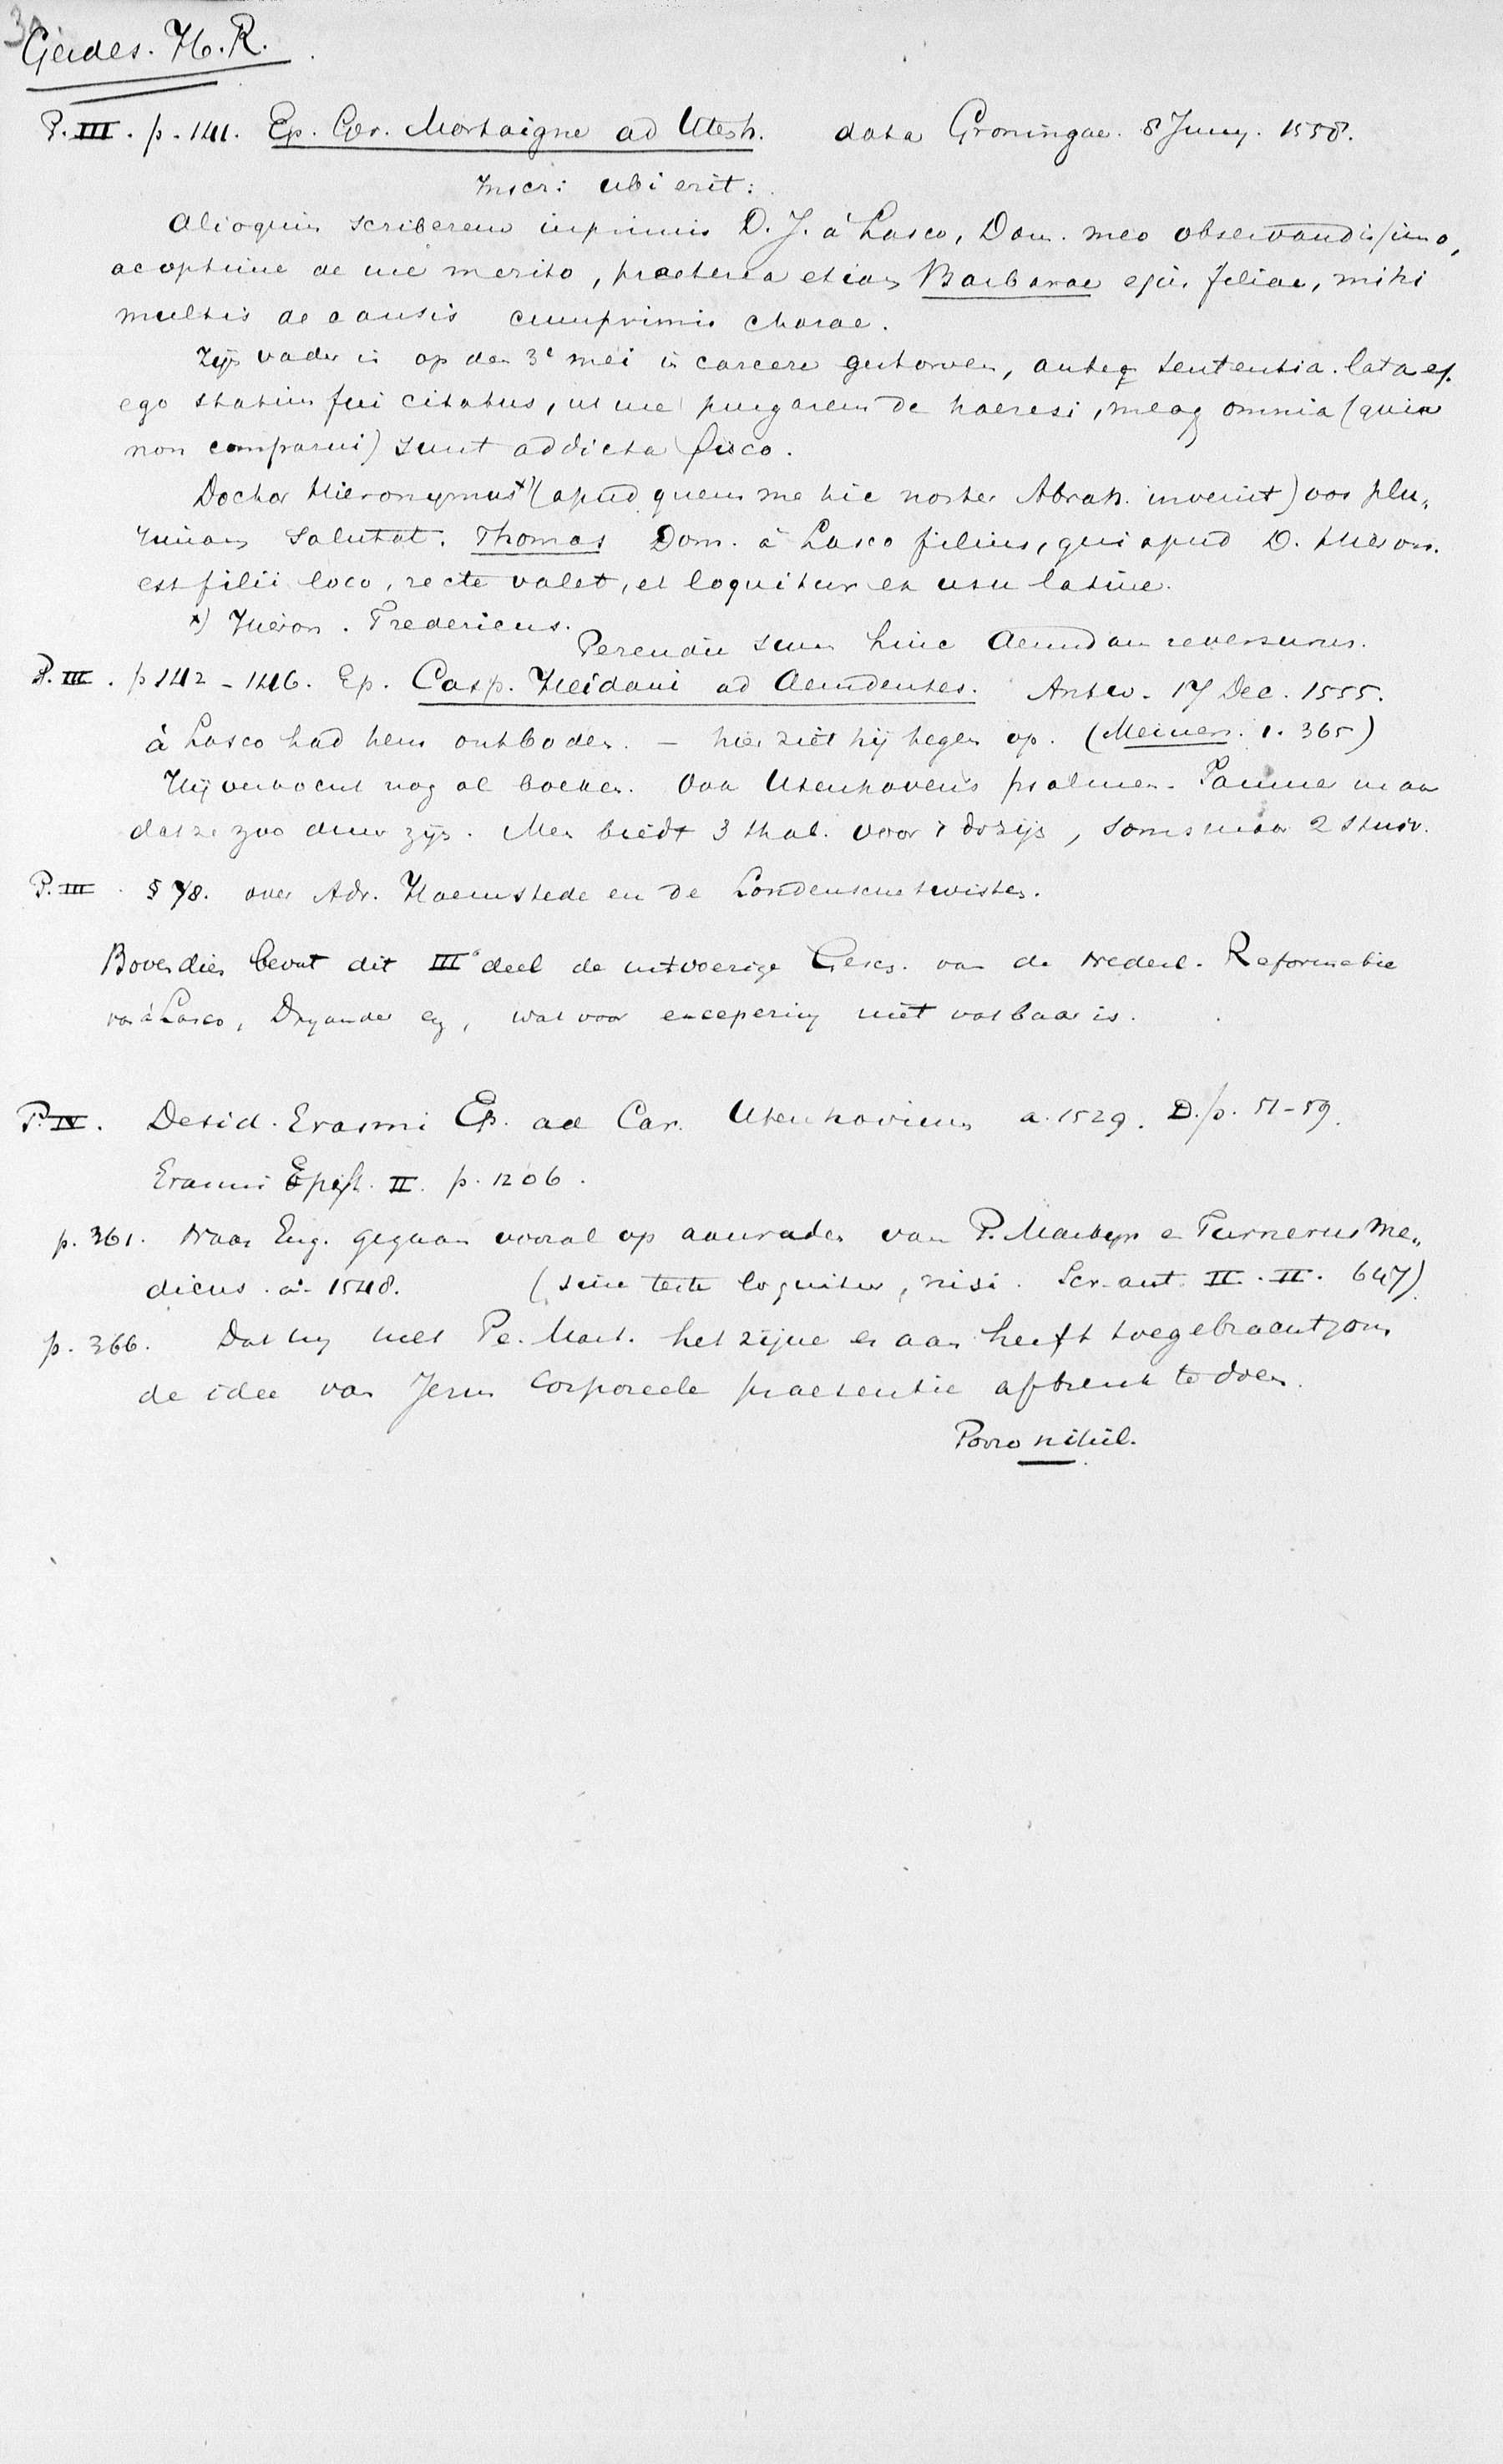 30
Gerdes. H. R.
P. III. p. 141. Ep. Ger. Mortaigne ad Utenh. data Groningae. 8 Juny. 1558.
Inscr: ubi erit:
Alioquin scriberem inprimis D. J. à Lasco, Dom. meo observandissimo,
ac optime de me merito, praeterea etiam Barbarae ejus filiae, mihi
multis de causis cumprimis charae.
Zijn vader is op den 3e mei in carcere gestorven, anteq sententia lata est.
ego statim fui citatus, ut me purgarem de haeresi, meaq omnia (quia
non comparui) sunt addicta fisco.
Doctor Hieronymus x) (apud quem me hic noster Abrah. invenit) vos plu„
rimam salutat. Thomas Dom. à Lasco filius, qui apud D. Hieron.
est filii loco, recte valet, et loquitur ex usu latine.
x) Hieron. Fredericus.
Perendie sum hinc Aemdam reversurus.
P. III. p 142 - 146. Ep. Casp. Heidani ad Aemdenses. Antw. 17 Dec. 1555.
à Lasco had hem ontboden. — hier ziet hij tegen op. (Meiners. 1. 365)
Hij verkocht nog al boeken. Ook Utenhoven's psalmen. Jammer maar
dat ze zoo duur zijn. Men biedt 3 thal. voor 't dozijn, soms maar 2 stuiv.
P. III. § 78. over Adr. Haemstede en de Londensche twisten.
Bovendien bevat dit IIIe deel de uitvoerige Gesch. van de Nederl. Reformatie
van à Lasco, Dryander en, wat voor excepering niet vatbaar is.
P. IV. Desid. Erasmi Ep. ad Car. Utenhovium a. 1529. D. p. 51-59.
Erasmi Epist. II. p. 1206.
p. 361. Naar Eng. gegaan vooral op aanraden van P. Martyr en Turnerus Me„
dicus. ao. 1548. (sine teste loquitur, nisi. Scr. ant. II. II. 647)
p. 366. Dat hij met Pe. Mart. het zijne er aan heeft toegebracht, om
de idee van Jesus corporeele praesentie afbreuk te doen.
Porro nihil.